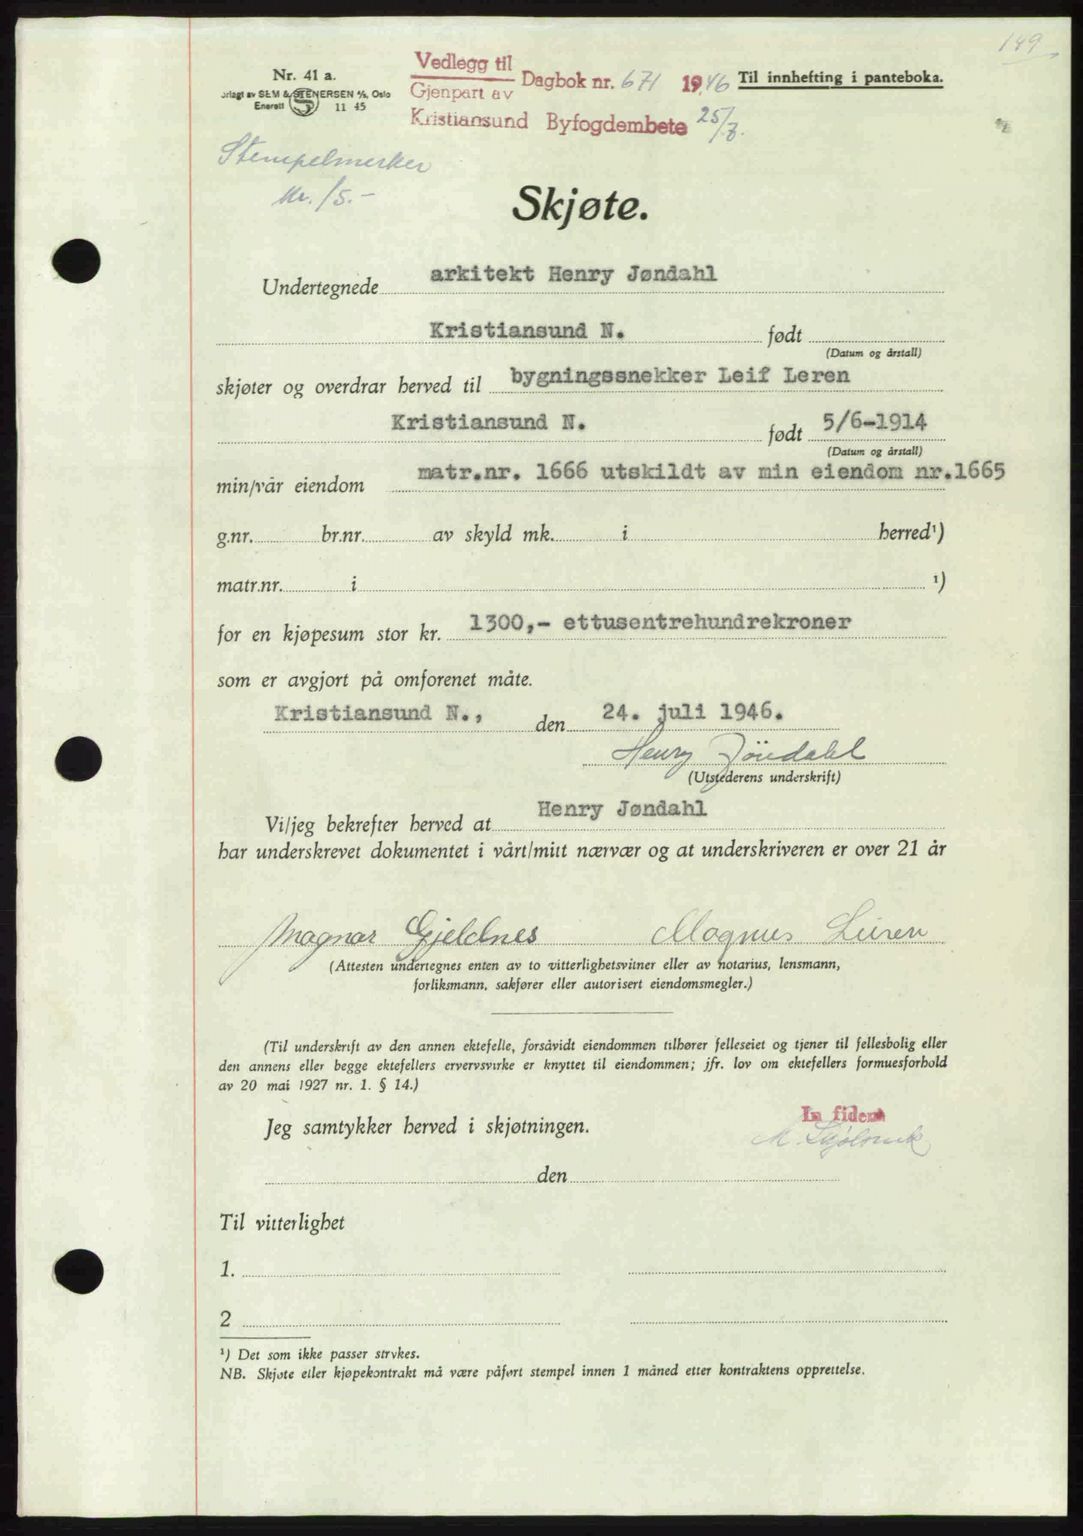 149
Nr. 41 a.
orlagt av SEM & STENERSEN A/s, Oslo
Enerett 11 45
Vedlegg til
Gjenpart av
Dagbok nr. 671 1946
Kristiansund Byfogdembete 25/7.
Til innhefting i panteboka.
Stempelmerker
kr. 15.-
Skjøte.
Undertegnede arkitekt Henry Jøndahl
Kristiansund N. født
(Datum og årstall)
skjøter og overdrar herved til bygningssnekker Leif Leren
Kristiansund N. født 5/6-1914
(Datum og årstall)
min/vår eiendom matr.nr. 1666 utskildt av min eiendom nr.1665
g.nr. br.nr. av skyld mk. i herred¹)
matr.nr. i ¹)
for en kjøpesum stor kr. 1300,- ettusentrehundrekroner
som er avgjort på omforenet måte.
Kristiansund N., den 24. juli 1946.
Henry Jöndahl
(Utstederens underskrift)
Vi/jeg bekrefter herved at Henry Jøndahl
har underskrevet dokumentet i vårt/mitt nærvær og at underskriveren er over 21 år
Magnar Gjeldnes Magnus
(Attesten undertegnes enten av to vitterlighetsvitner eller av notarius, lensmann,
forliksmann, sakfører eller autorisert eiendomsmegler.)
(Til underskrift av den annen ektefelle, forsåvidt eiendommen tilhører felleseiet og tjener til fellesbolig eller
den annens eller begge ektefellers ervervsvirke er knyttet til eiendommen; jfr. lov om ektefellers formuesforhold
av 20 mai 1927 nr. 1. § 14.)
Jeg samtykker herved i skjøtningen.
In fidem
M.
den
Til vitterlighet
1.
2
¹) Det som ikke passer strykes.
NB. Skjøte eller kjøpekontrakt må være påført stempel innen 1 måned etter kontraktens opprettelse.